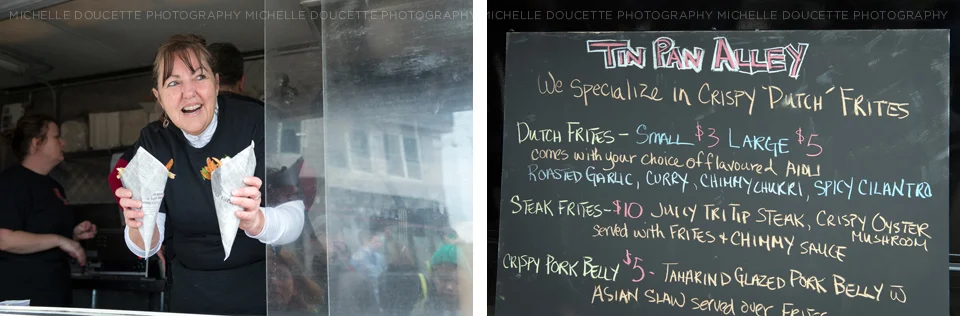 MICHELLE DOUCETTE PHOTOGRAPHY MICHELLE DOUCETTE PHOTOGRAPHY
MICHELLE DOUCETTE PHOTOGRAPHY MICHELLE DOUCETTE PHOTOGRAPHY
TIN PAN ALLEY
We Specialize in CRISPY "DUTCH" FRITES
DUTCH FRITES - SMALL $3 LARGE $5
comes with your choice of flavoured AIOLI
ROASTED GARLIC, CURRY, CHIMMYCHURRI, SPICY CILANTRO
STEAK FRITES - $10 JUICY TRI TIP STEAK, CRISPY OYSTER
MUSHROOM
served with FRITES + CHIMMY SAUCE
CRISPY PORK BELLY $5 - TAMARIND GLAZED PORK BELLY w
ASIAN SLAW served over FRITES